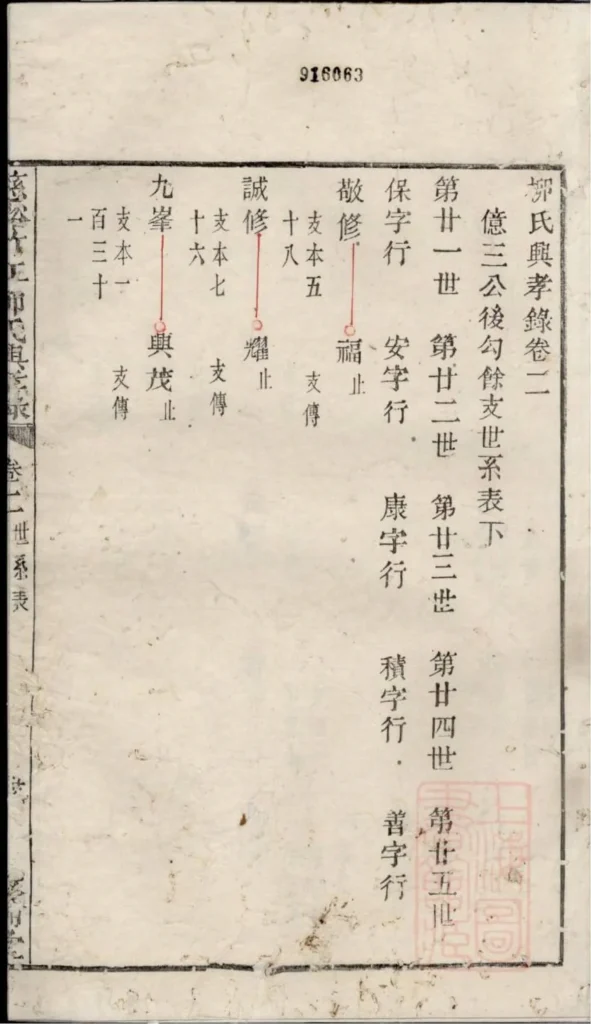 916063
柳氏興孝錄卷二
億三公後勾餘支世系表下
第廿一世 第廿二世 第廿三世 第廿四世 第廿五世
保字行 安字行 康字行 積字行 善字行
敬修 福止
支本五 支傳
十八
誠修 耀止
支本七 支傳
十六
九峯 興茂止
支本一 支傳
百三十
一
卷二 世系表